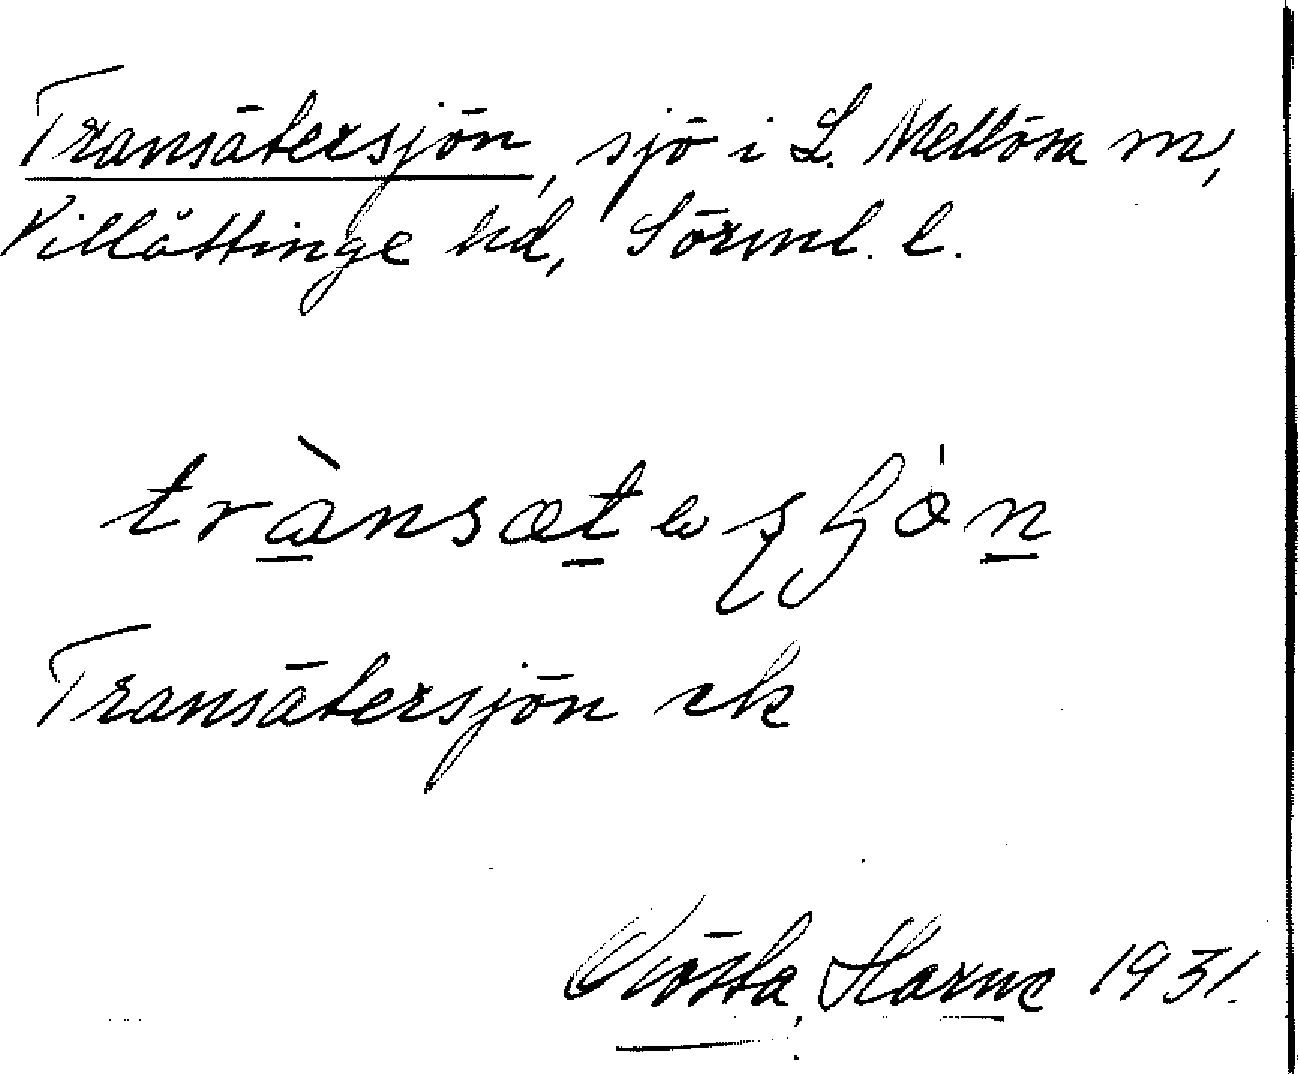 Transätersjön, sjö i L. Mellösa sn,
Villåttinge hd, Sörml. l.
trànsæteʂʃön
Transätersjön ek
Gösta 1931.